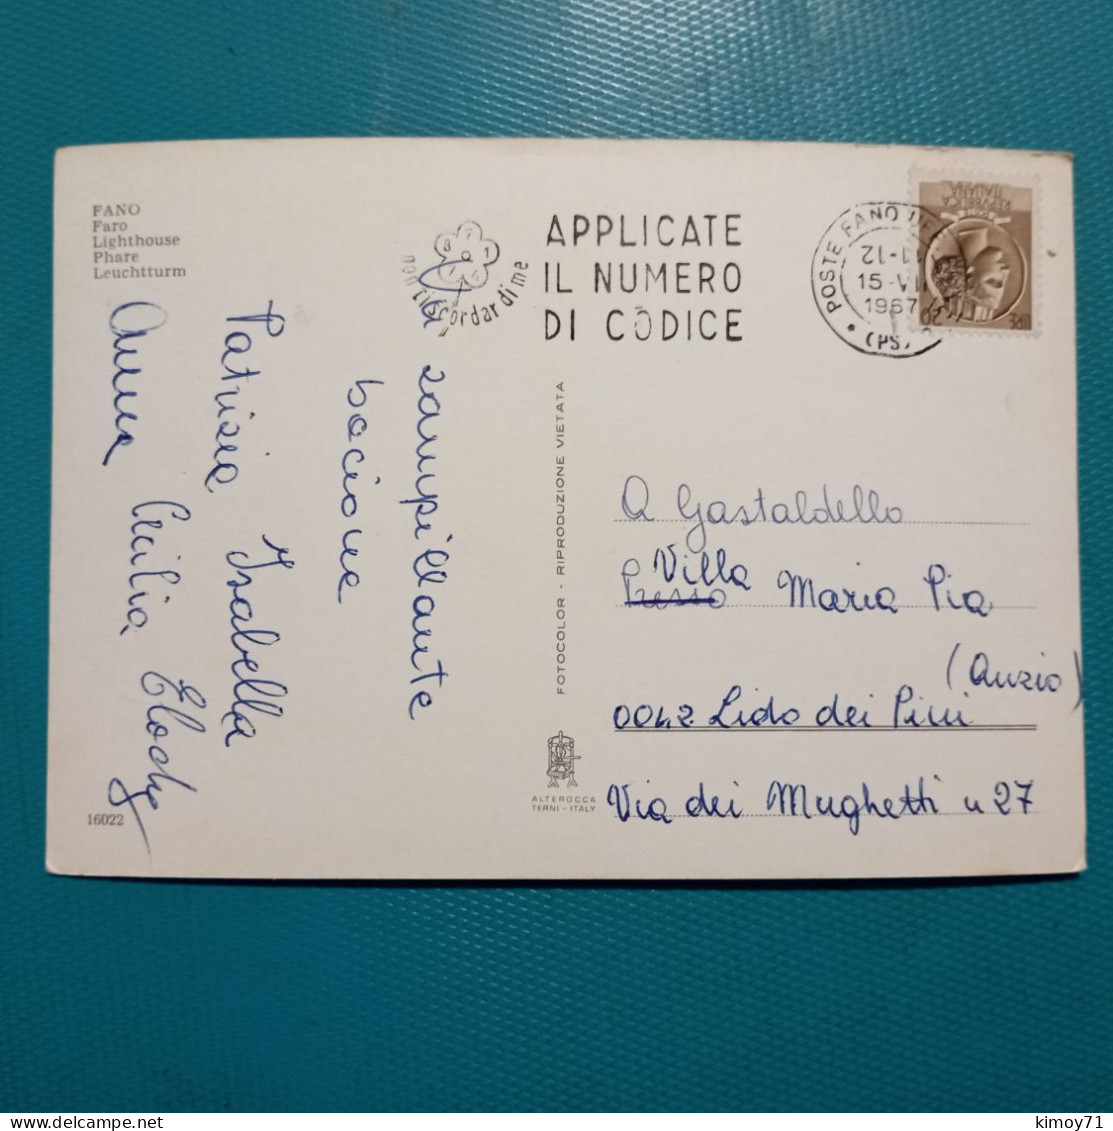 FANO
Faro
Lighthouse
Phare
Leuchtturm
non ti scordar di me
APPLICATE
IL NUMERO
DI CODICE
POSTE FANO
11-12
15-VII
1967
(PS)
REPVBBLICA
ITALIANA
zampillante
bacione
Patrizia Isabella
Anna
FOTOCOLOR - RIPRODUZIONE VIETATA
ALTEROCCA
TERNI - ITALY
16022
A Gastaldello
Presso Villa Maria Pia
(Anzio)
0042 Lido dei Pini
Via dei Mughetti n 27
kimoy71